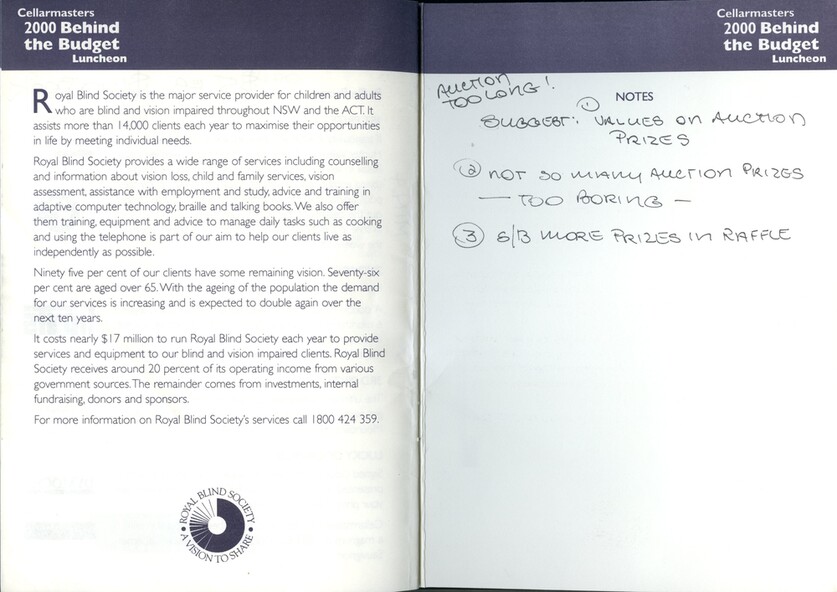 Cellarmasters
2000 Behind
the Budget
Luncheon
Royal Blind Society is the major service provider for children and adults
who are blind and vision impaired throughout NSW and the ACT. It
assists more than 14,000 clients each year to maximise their opportunities
in life by meeting individual needs.
Royal Blind Society provides a wide range of services including counselling
and information about vision loss, child and family services, vision
assessment, assistance with employment and study, advice and training in
adaptive computer technology, braille and talking books. We also offer
them training, equipment and advice to manage daily tasks such as cooking
and using the telephone is part of our aim to help our clients live as
independently as possible.
Ninety five per cent of our clients have some remaining vision. Seventy-six
per cent are aged over 65. With the ageing of the population the demand
for our services is increasing and is expected to double again over the
next ten years.
It costs nearly $17 million to run Royal Blind Society each year to provide
services and equipment to our blind and vision impaired clients. Royal Blind
Society receives around 20 percent of its operating income from various
government sources. The remainder comes from investments, internal
fundraising, donors and sponsors.
For more information on Royal Blind Society's services call 1800 424 359.
ROYAL BLIND SOCIETY
A VISION TO SHARE
Cellarmasters
2000 Behind
the Budget
Luncheon
AUCTION
TOO LONG!
NOTES
SUGGEST: ① VALUES ON AUCTION
PRIZES
② NOT SO MANY AUCTION PRIZES
— TOO BORING —
③ S/B MORE PRIZES IN RAFFLE